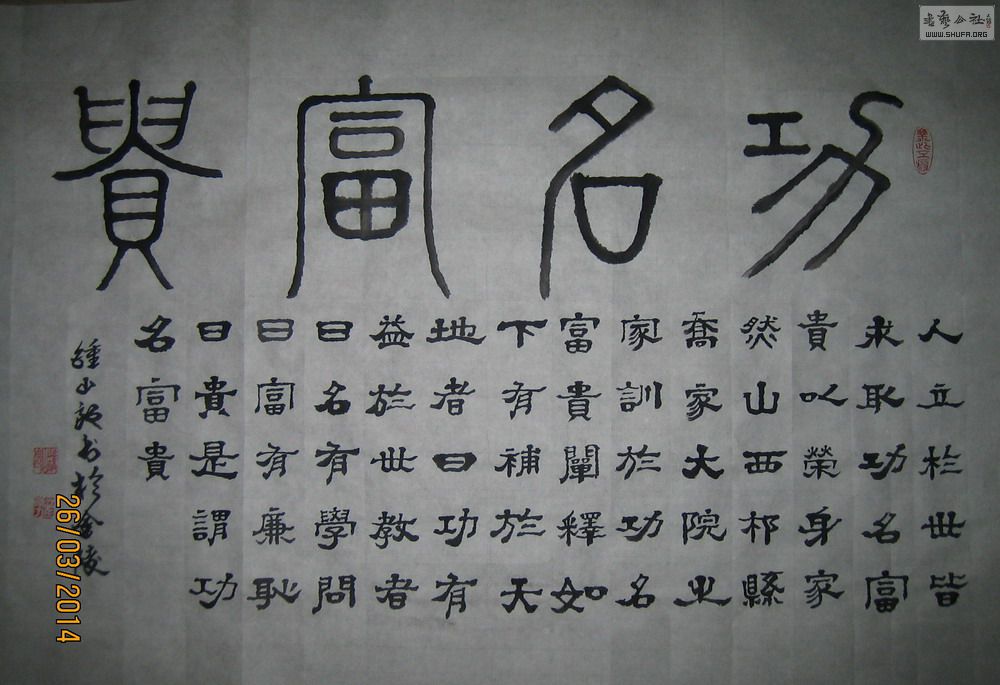 功名富貴
人立於世皆
求取功名富
貴以榮身家
然山西祁縣
喬家大院之
家訓於功名
富貴闡釋如
下有補於天
地者曰功有
益於世教者
曰名有學問
曰富有廉恥
曰貴是謂功
名富貴
鍾山书於金陵
26/03/2014
书藝公社
WWW.SHUFA.ORG